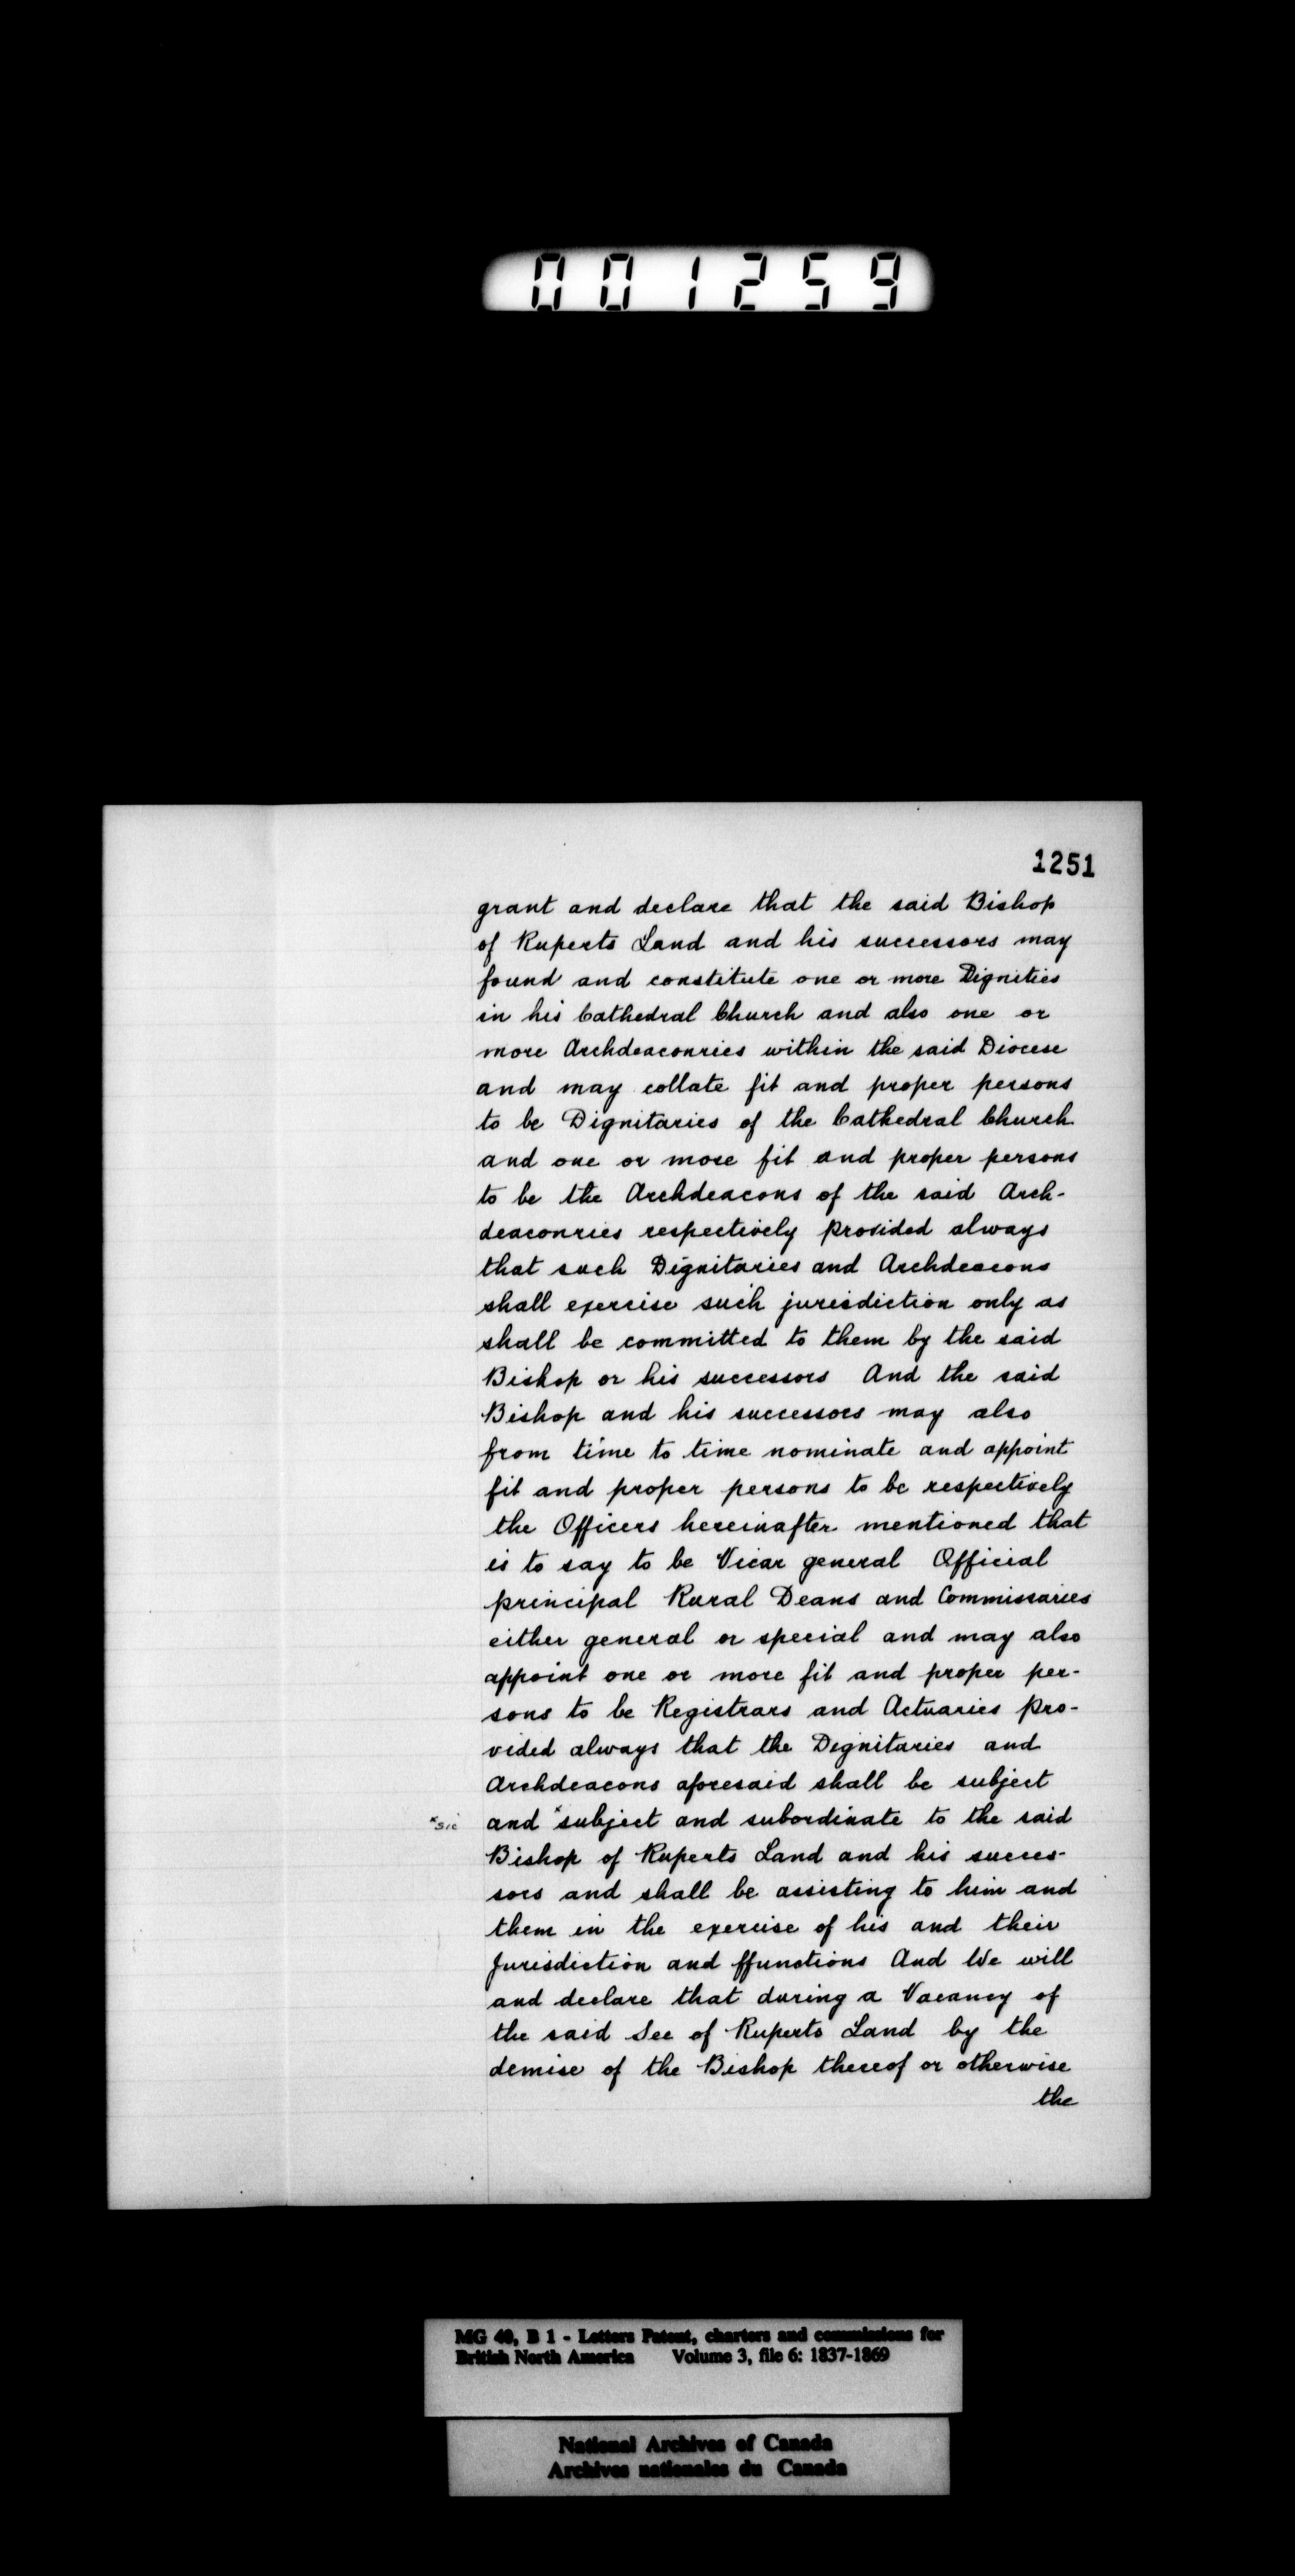 001259
1251
grant and declare that the said Bishop
of Ruperts Land and his successors may
found and constitute one or more Dignities
in his Cathedral Church and also one or
more Archdeaconries within the said Diocese
and may collate fit and proper persons
to be Dignitaries of the Cathedral Church
and one or more fit and proper persons
to be the Archdeacons of the said Arch-
deaconries respectively provided always
that such Dignitaries and Archdeacons
shall exercise such jurisdiction only as
shall be committed to them by the said
Bishop or his successors And the said
Bishop and his successors may also
from time to time nominate and appoint
fit and proper persons to be respectively
the Officers hereinafter mentioned that
is to say to be Vicar general Official
principal Rural Deans and Commissaries
either general or special and may also
appoint one or more fit and proper per-
sons to be Registrars and Actuaries pro-
vided always that the Dignitaries and
Archdeacons aforesaid shall be subject
*sic and *subject and subordinate to the said
Bishop of Ruperts Land and his succes-
sors and shall be assisting to him and
them in the exercise of his and their
Jurisdiction and ffunctions And We will
and declare that during a Vacancy of
the said See of Ruperts Land by the
demise of the Bishop thereof or otherwise
the
MG 40, B 1 - Letters Patent, charters and commissions for
British North America Volume 3, file 6: 1837-1869
National Archives of Canada
Archives nationales du Canada